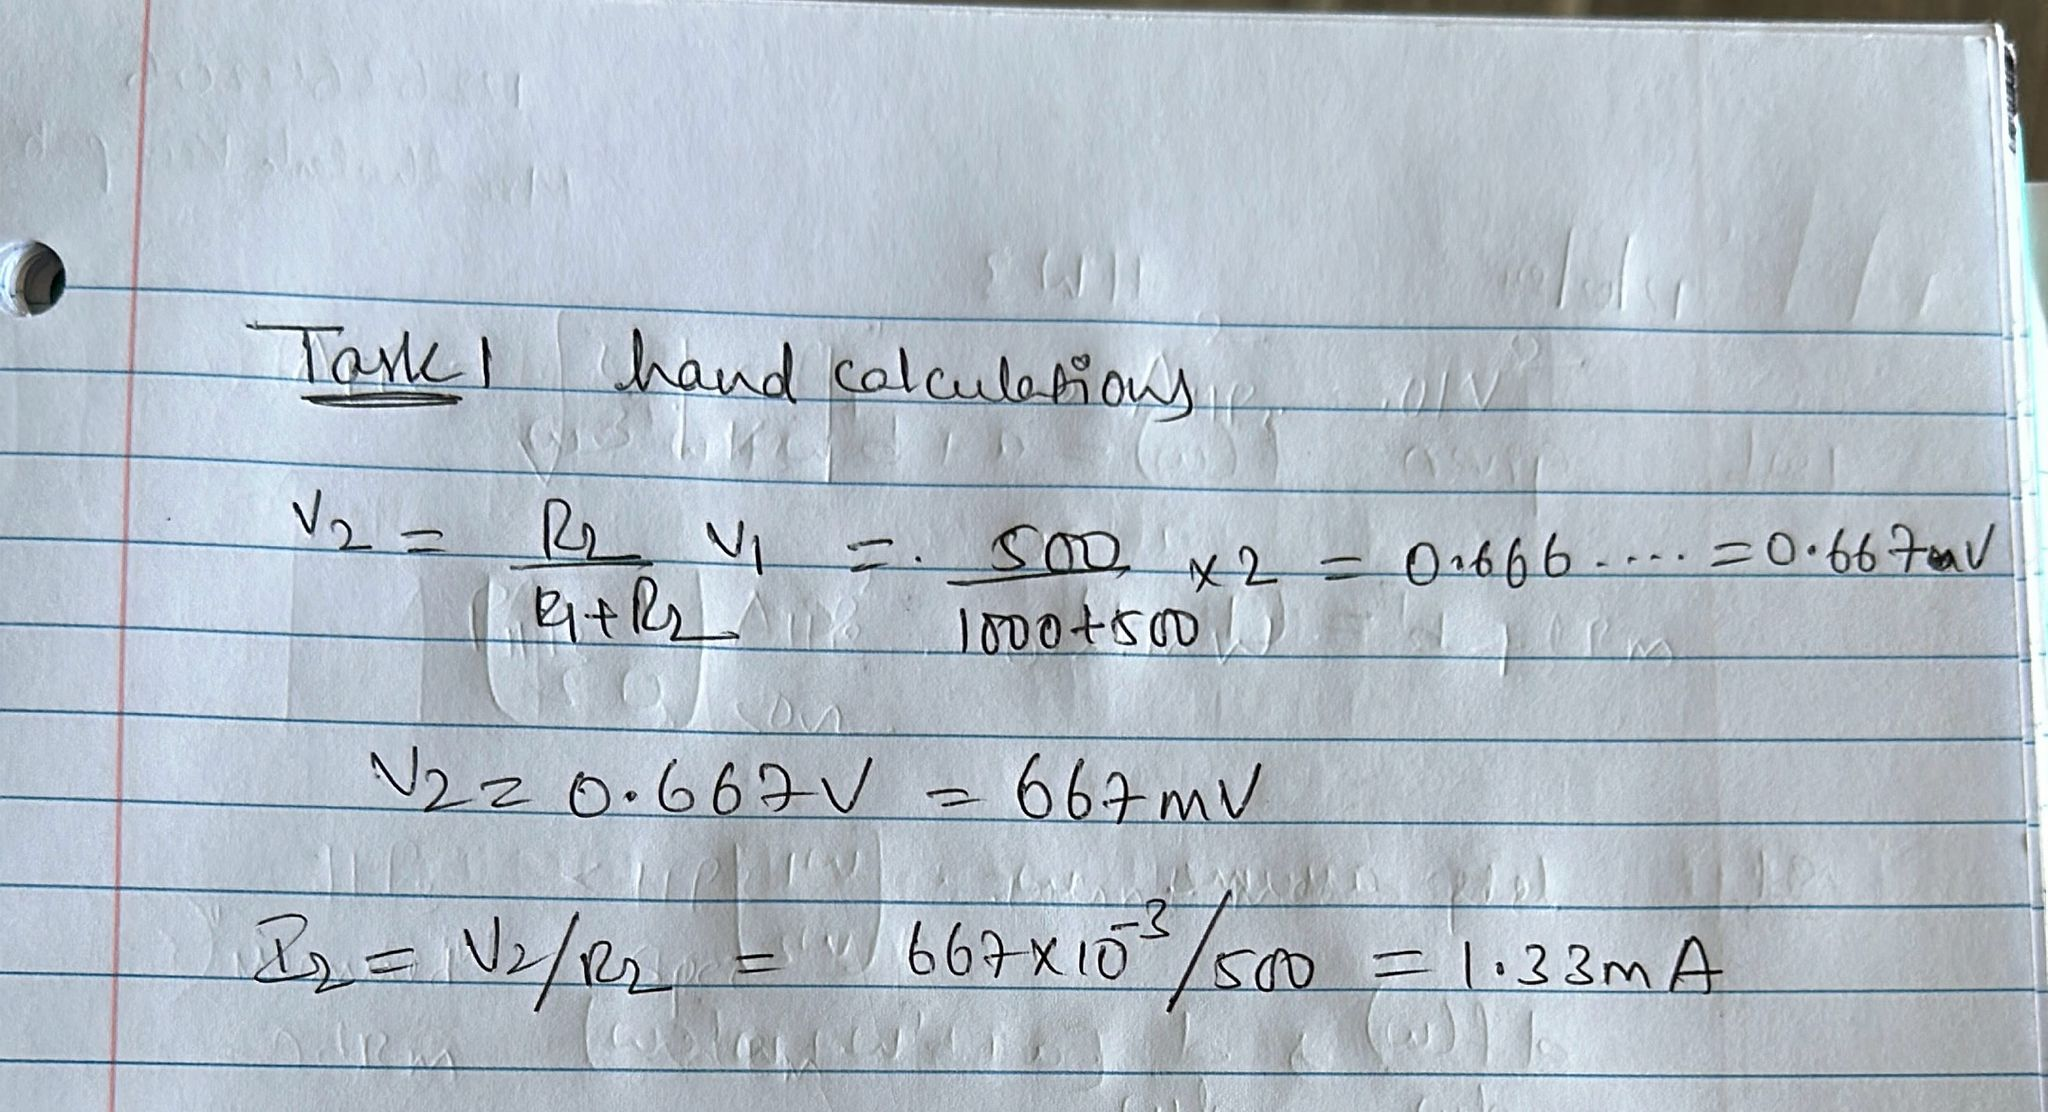 Task 1 hand calculations
V2 = R2/(R1+R2) V1 = 500/(1000+500) x 2 = 0.666..... = 0.667 V
V2 = 0.667V = 667mV
I2 = V2/R2 = 667x10^-3/500 = 1.33mA